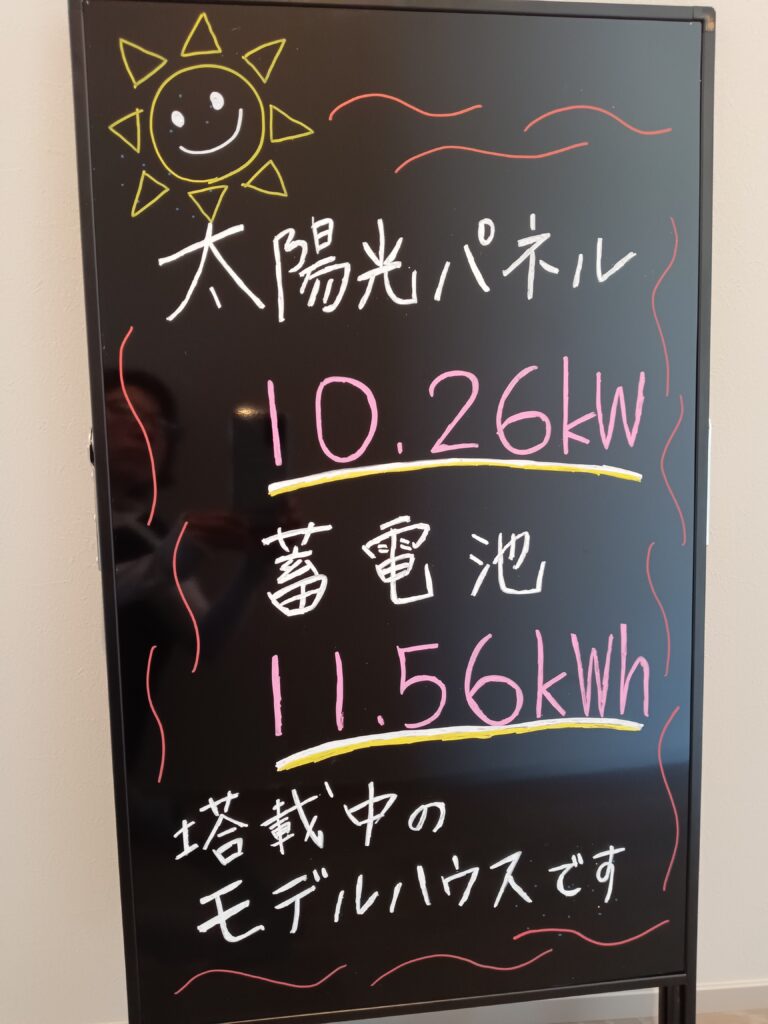 太陽光パネル
10.26kW
蓄電池
11.56kWh
塔載中の
モデルハウスです